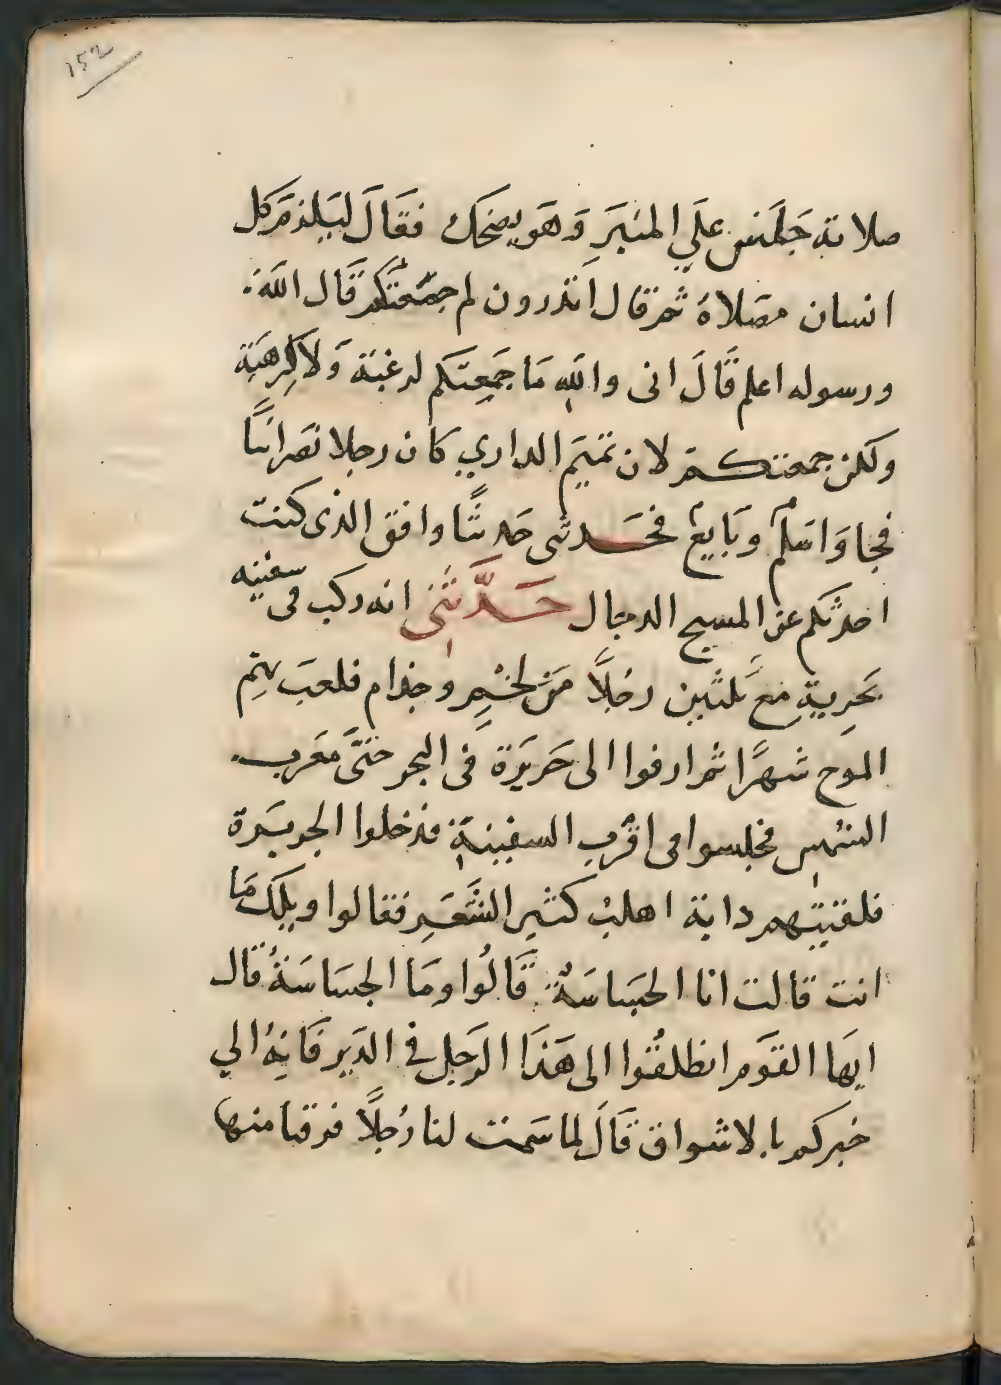 152
صلاته جَلَسَ علَي المنبَرِ وَهَو يضحَك فقَالَ ليَلزمَر كل
انسان مصَلاهُ ثمر قال اتدرون لم جمَعتَكُم قَال الله
ورسوله اعلم قَالَ انى واللهِ مَا جمَعِتكم لرغبَة وَلا لِرهبَة
ولكن جمعتكم لان تميَم الداري كان رجلا نصَرانيًا
فجا وَاسَلمُ وبَايعَ فحَدثنى حَدثًا وافق الذى كنت
احدثكم عن المسيح الدجال حَدَّثَنِى انه ركب فى سفينه
بحَرِيةِ معَ ثَلثين رجُلاً مَن لخمِ وجذام فلعبَ بهِم
الموح شهرًا ثمر ارفوا الى جَزيَرة فى البحر حَتَّى مغَرب
الشمسِ فجلسوا فى اقرُب السفينةِ فدخلوا الجزيَرة
فلقيتهم دابة اهلبُ كثير الشَّعَرِ فقالوا ويلك مَا
انت قالت انا الجسَاسَةُ قَالُوا ومَا الجسَاسَةُ قال
ايهَا القوَمر انطلقُوا الى هَذَا الرجَلِ فى الدَيرِ فَانِهُ الي
خبركم بالاشواق قَالَ لما سَمت لنا رُجلاً فرقنا منها